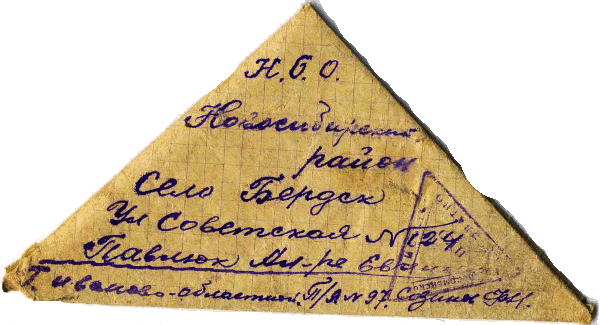 Н.С.О.
Новосибирский
район
Село Бердск
Ул Советская №124
Павлюк Ал-ре
Г. Иваново-областной. П/Я №97.